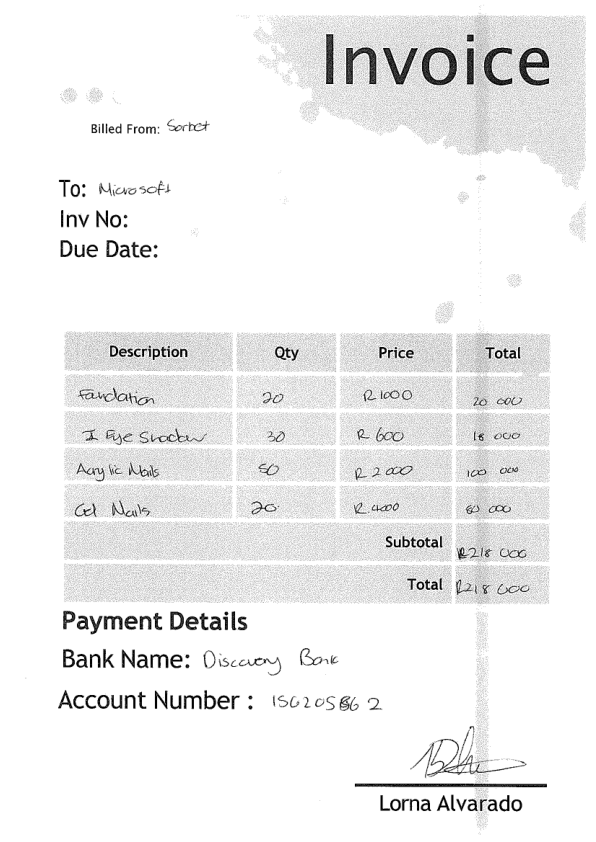 Invoice
Billed From: Sorbet
To: Microsoft
Inv No:
Due Date:
Description Qty Price Total
Foundation 20 R 1000 20 000
I Eye Shadow 30 R 600 18 000
Acrylic Nails 50 R 2 000 100 000
Gel Nails 20 R 4000 80 000
Subtotal R218 000
Total R218 000
Payment Details
Bank Name: Discovery Bank
Account Number :
Lorna Alvarado